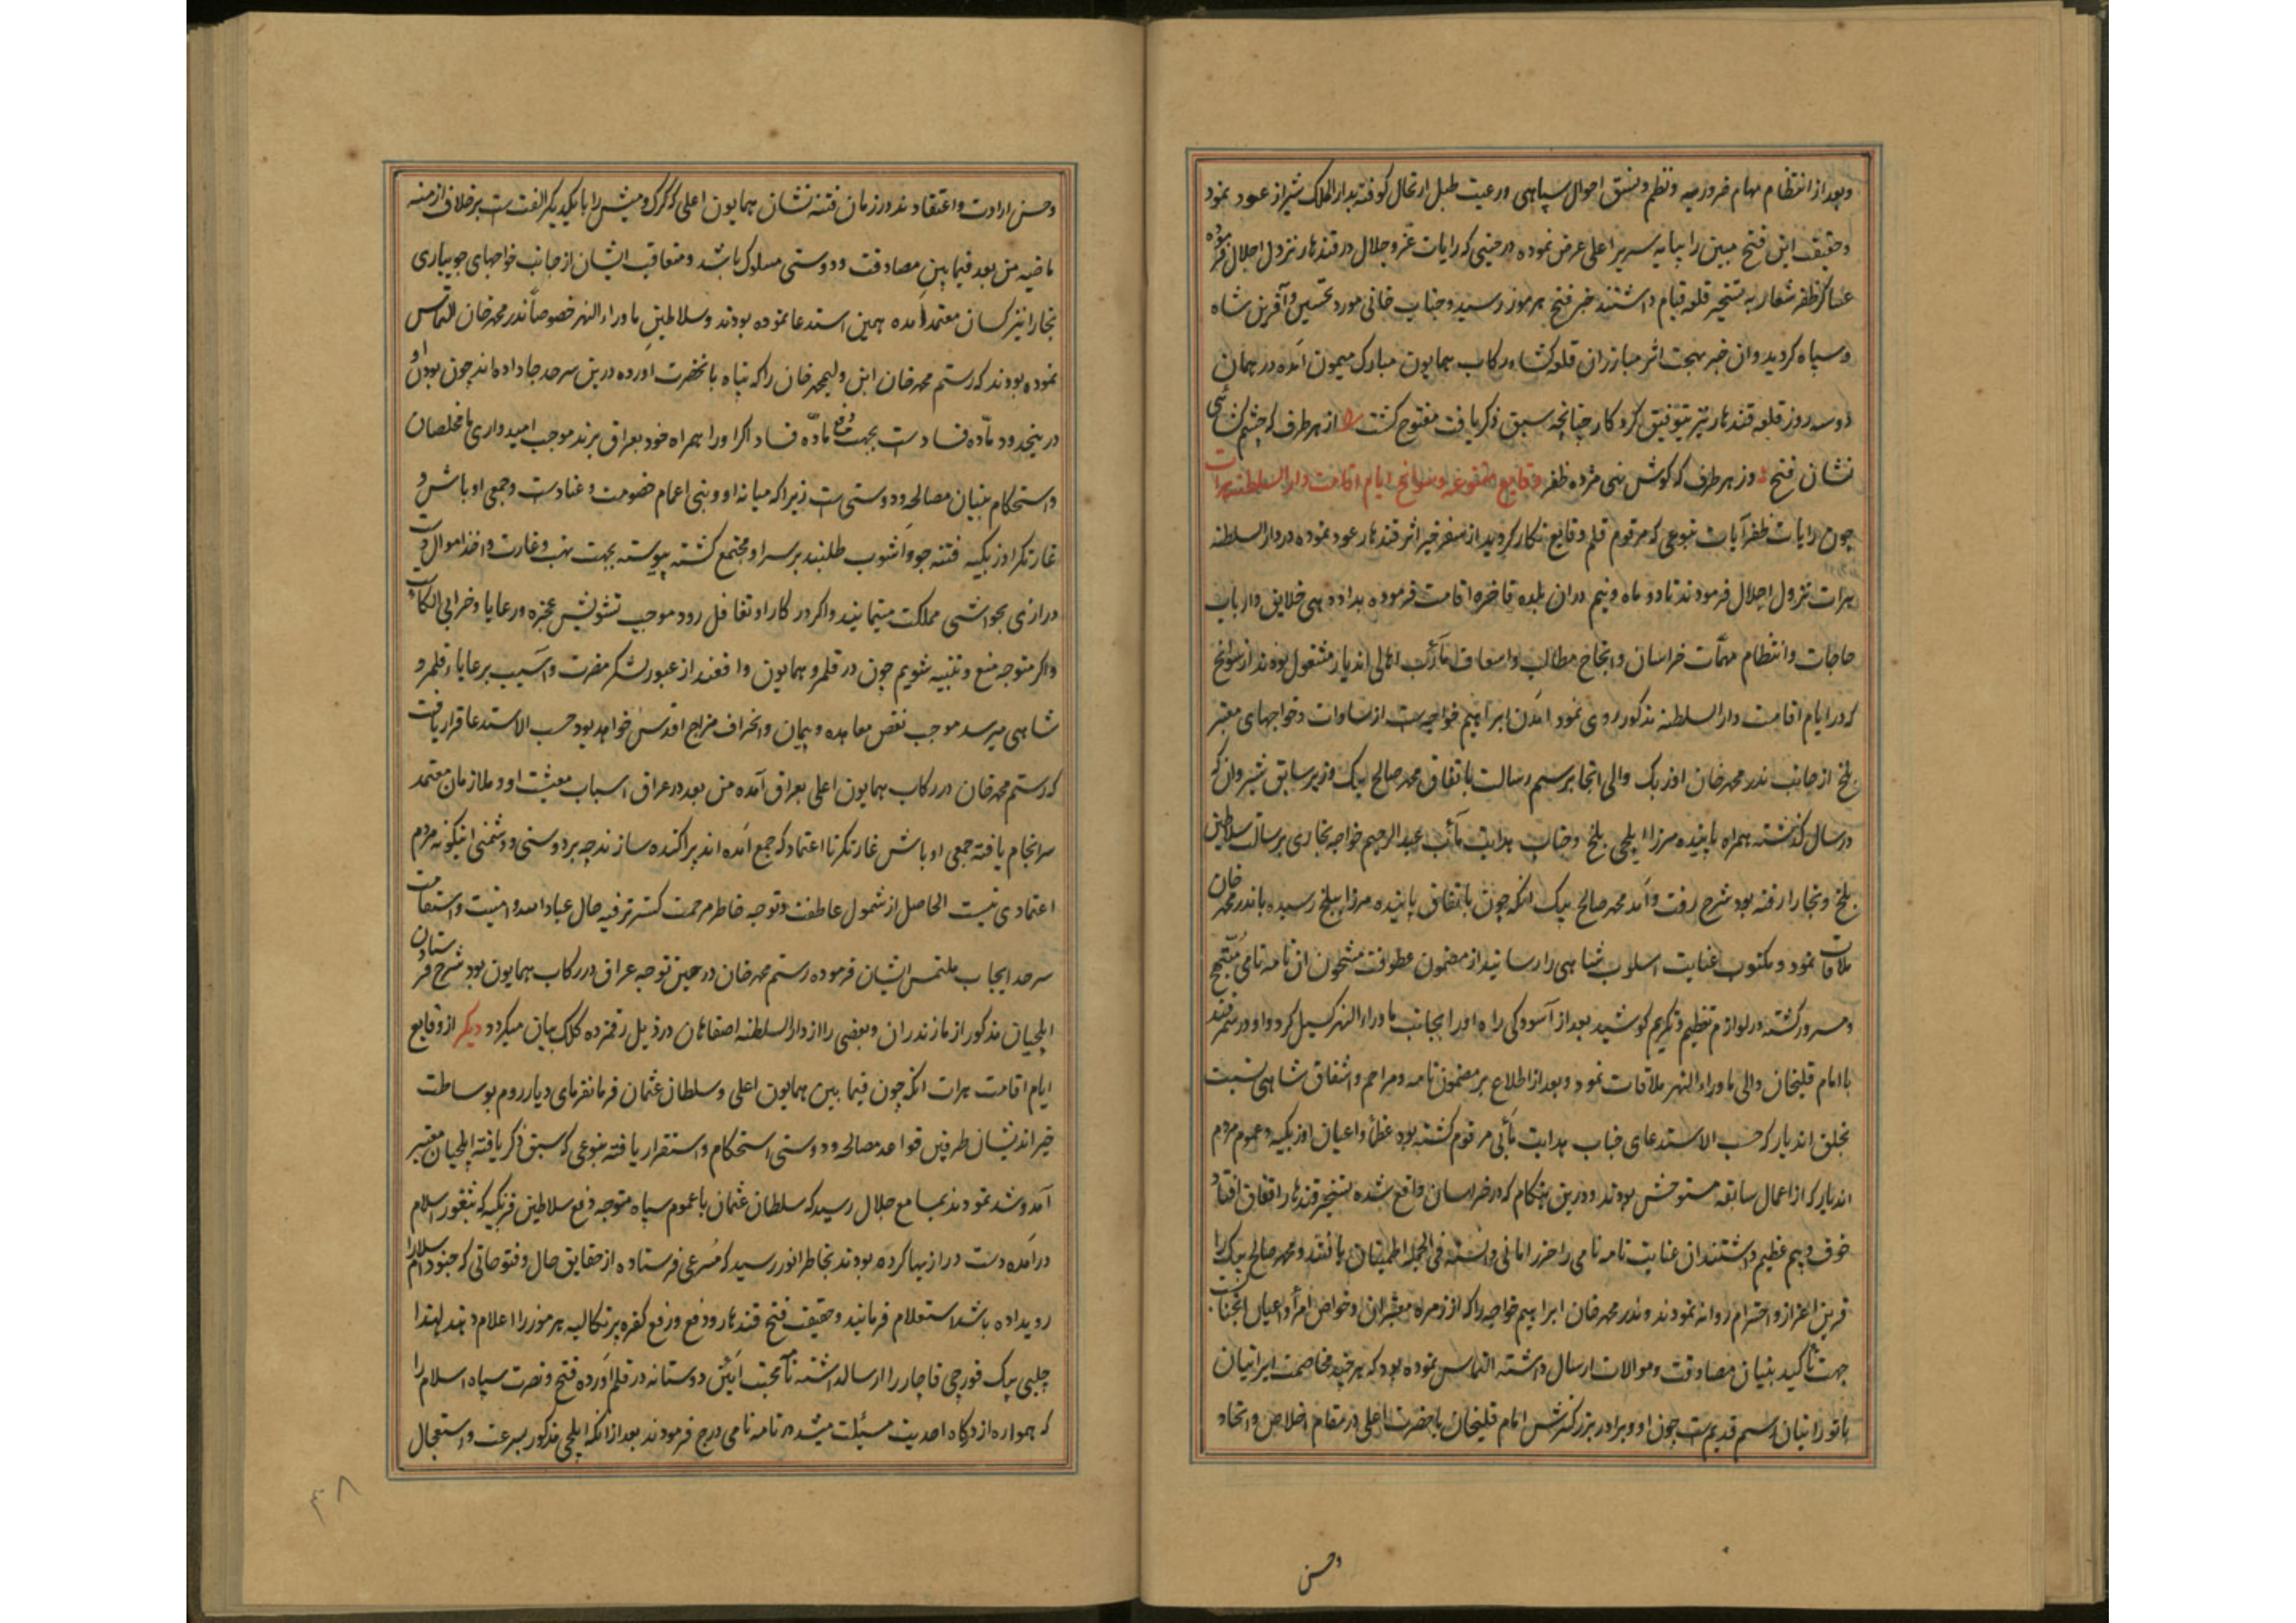 وبعد از انتظام مهام ضروریه ونظم ونسق احوال سپاهی ورعیت طبل ارتحال کوفته بدار الملک شیراز عود نمود
وحقیقت این فتح مبین را بپایه سریر اعلی عرض نموده در حینی که رایات عز وجلال در قندهار نزول اجلال فرموده
عساکر ظفر شعار به تسخیر قلعه قیام داشتند خبر فتح هرموز رسید وجناب خانی مورد تحسین وآفرین شاه
وسپاه کردید وان خبر بهجت اثر مبارزان قلعه کشاء رکاب همایون مبارک میمون آمده در همان
دو سه روز قلعه قندهار نیز بتوفیق کردکار چنانچه سبق ذکر یافت مفتوح کشت از هر طرف که چشم کشائی
نشان فتح وز هر طرف که کوش نهی مژده ظفر وقایع متنوعه وسوانح ایام اقامت دار السلطنه هرات
چون رایات ظفر آیات بنوعی که مرقوم قلم وقایع نکار کردید از سفر خیر اثر قندهار عود نموده در دار السلطنه
هرات نزول اجلال فرمودند تا دو ماه ونیم دران بلده فاخره اقامت فرموده بداد دهی خلایق وارباب
حاجات وانتظام مهمات خراسان وانجاح مطالب واسعاف مآرب اهالی اندیار مشغول بودند از سوانح
که در ایام اقامت دار السلطنه مذکور روی نمود آمدن ابراهیم خواجه است از سادات وخواجهای معتبر
بلخ از جانب ندر محمد خان اوزبک والی انجا برسم رسالت باتفاق محمد صالح بیک وزیر سابق شیروان که
در سال کذشته همراه باینده میرزا ایلچی بلخ وجناب هدایت مآب عبد الرحیم خواجه بخاری برسالت سلاطین
بلخ وبخارا رفته بود شرح رفت وآمد محمد صالح بیک انکه چون باتفاق باینده میرزا ببلخ رسیده با ندر محمد خان
ملاقات نمود ومکتوب عنایت اسلوب شاهی را رسانید از مضمون عطوفت مشحون ان نامه نامی مبتهج
ومسرور کشته در لوازم تعظیم وتکریم کوشید بعد از آسودکی راه اورا بجانب ماوراء النهر کسیل کرد واو در سمرقند
با امام قلیخان والی ماوراء النهر ملاقات نمود وبعد از اطلاع بر مضمون نامه ومراحم واشفاق شاهی نسبت
بخلق اندیار که حسب الاستدعای جناب هدایت مآبی مرقوم کشته بود عظما واعیان اوزبکیه وعموم مردم
اندیار که از اعمال سابقه مستوحش بودند ودرین هنکام که در خراسان واقع شده تسخیر قندهار اتفاق افتاد
خوف وبیم عظیم داشتند ان عنایت نامه نامی را حرز امانی دانسته فی الجمله اطمینان یافتند ومحمد صالح بیک را
قرین اعزاز واحترام روانه نمودند وندر محمد خان ابراهیم خواجه را که از زمره معتبران وخواص امرا واعیان انجناب
جهت تاکید بنیان مصادقت وموالات ارسال داشته التماس نموده بود که هر چند مخاصمت ایرانیان
با تورانیان رسم قدیم است چون او وبرادر بزرکترش امام قلیخان با حضرت اعلی در مقام اخلاص واتحاد
وحسن
وحسن ارادت واعتقادند در زمان فتنه نشان همایون اعلی که کرک ومیش را با یکدیکر الفت است بر خلاف ازمنه
ماضیه من بعد فیما بین مصادقت ودوستی مسلوک باشد ومتعاقب ایشان از جانب خواجهای جویباری
بخارا نیز کسان معتمد آمده همین استدعا نموده بودند وسلاطین ماوراء النهر خصوصا ندر محمد خان التماس
نموده بودند که رستم محمد خان ابن ولیمحمد خان را که پناه بانحضرت آورده درین سرحد جا داده اند چون بودن او
درینحدود ماده فساد است بجهت دفع ماده فساد اکر اورا همراه خود بعراق برند موجب امیدواری ما مخلصان
واستحکام بنیان مصالحه ودوستی است زیرا که میانه او وبنی اعمام خصومت وعناد است وجمعی اوباش و
غارتکر اوزبکیه فتنه جو وآشوب طلبند بر سر او مجتمع کشته پیوسته بجهت نهب وغارت واخذ اموال دست
درازی بحواشی مملکت مینمایند واکر در کار او تغافل رود موجب تشویش عجزه ورعایا وخرابی الکاست
واکر متوجه منع وتنبیه شویم چون در قلمرو همایون واقعند از عبور لشکر مضرت وآسیب برعایاء قلمرو
شاهی میرسد موجب نقض معاهده وپیمان وانحراف مزاج اقدس خواهد بود حسب الاستدعا قرار یافت
که رستم محمد خان در رکاب همایون اعلی بعراق آمده من بعد در عراق اسباب معیشت او وملازمان معتمد
سرانجام یافته جمعی اوباش غارتکر نا اعتماد که جمع آمده اند پراکنده سازند چه بر دوستی ودشمنی اینکونه مردم
اعتمادی نیست الحاصل از شمول عاطفت وتوجه خاطر مرحمت کستر ترفیه حال عباد الله وامنیت واستقامت
سرحد ایجاب ملتمس ایشان فرموده رستم محمد خان در حین توجه عراق در رکاب همایون بود شرح فرستادن
ایلچیان مذکور از مازندران وبعضی را از دار السلطنه اصفاهان در ذیل رقمزده کلک بیان میکردد دیکر از وقایع
ایام اقامت هرات انکه چون فیما بین همایون اعلی وسلطان عثمان فرمانفرمای دیار روم بوساطت
خیر اندیشان طرفین قواعد مصالحه ودوستی استحکام واستقرار یافته بنوعی که سبق ذکر یافته ایلچیان معتبر
آمد وشد نمودند بمسامع جلال رسید که سلطان عثمان با عموم سپاه متوجه دفع سلاطین فرنکیه که بثغور اسلام
درآمده دست درازیها کرده بودند بخاطر انور رسید که مسرعی فرستاده از حقایق حال وفتوحاتی که جنود اسلام را
رویداده باشد استعلام فرمایند وحقیقت فتح قندهار ودفع ورفع کفره پرتکالیه هرموز را اعلام دهند لهذا
چلبی بیک قورچی قاجار را ارسال داشته نامه محبت آیین دوستانه در قلم آورده فتح ونصرت سپاه اسلام را
که همواره از درکاه احدیت مسئلت میشد در نامه نامی درج فرمودند بعد از انکه ایلچی مذکور بسرعت واستعجال
۴۸